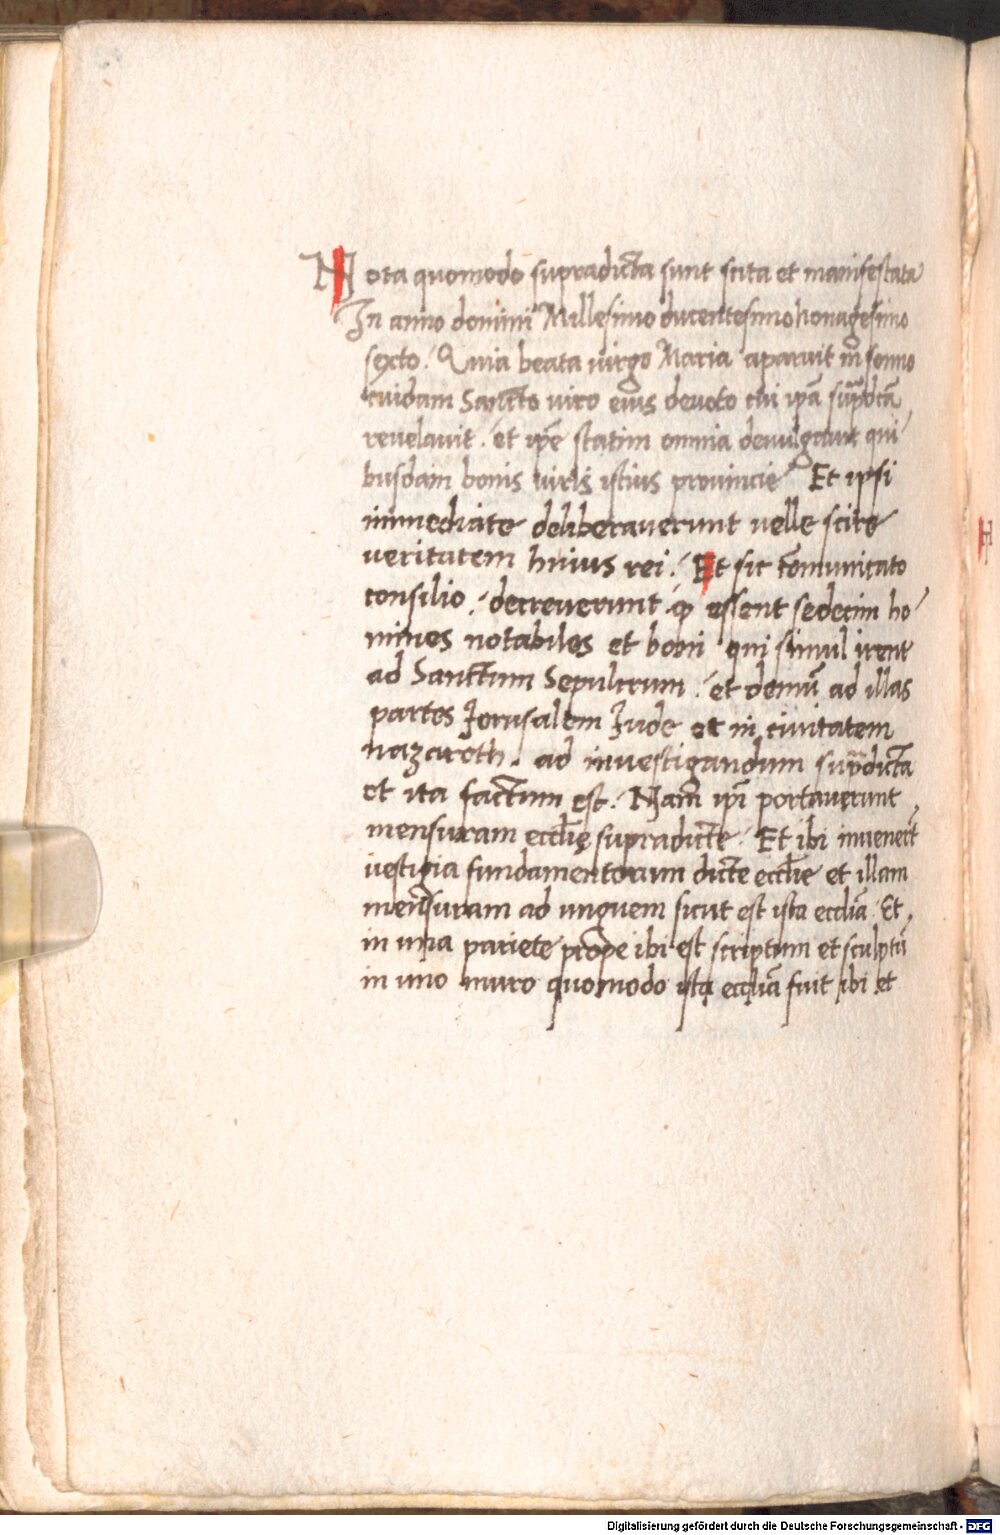 Nota quomodo supradicta sunt scita et manifestata
In anno domini Millesimo ducentesimo honagesimo
sexto. Quia beata virgo Maria aparuit in somno
cuidam Sancto viro eius devoto cui ipã supᵃdcã
revelavit. et ipẽ statim omnia devulgavit qui
busdam bonis viris istius provincie Et ipsi
immediate deliberaverunt velle scire
veritatem huius rei. Et sic cõmunicato
consilio. decreverunt. ꝙ essent sedecim ho
mines notabiles et boni qui simul irent
ad Sanctum Sepulcrum. et demũ ad illas
partes Jerusalem Jude et in civitatem
nazareth. ad investigandum supᵃdicta
et ita factum est. Nam ipĩ portaverunt
mensuram eccl̃ię supradicte. Et ibi invener̃t
vestigia fundamentorum dicte eccl̃ie et illam
mensuram ad unguem sicut est ista eccl̃ia. Et
in una pariete prope ibi est scriptum et sculptũ
in uno muro quomodo ista eccl̃ia fuit ibi et
Digitalisierung gefördert durch die Deutsche Forschungsgemeinschaft - DFG